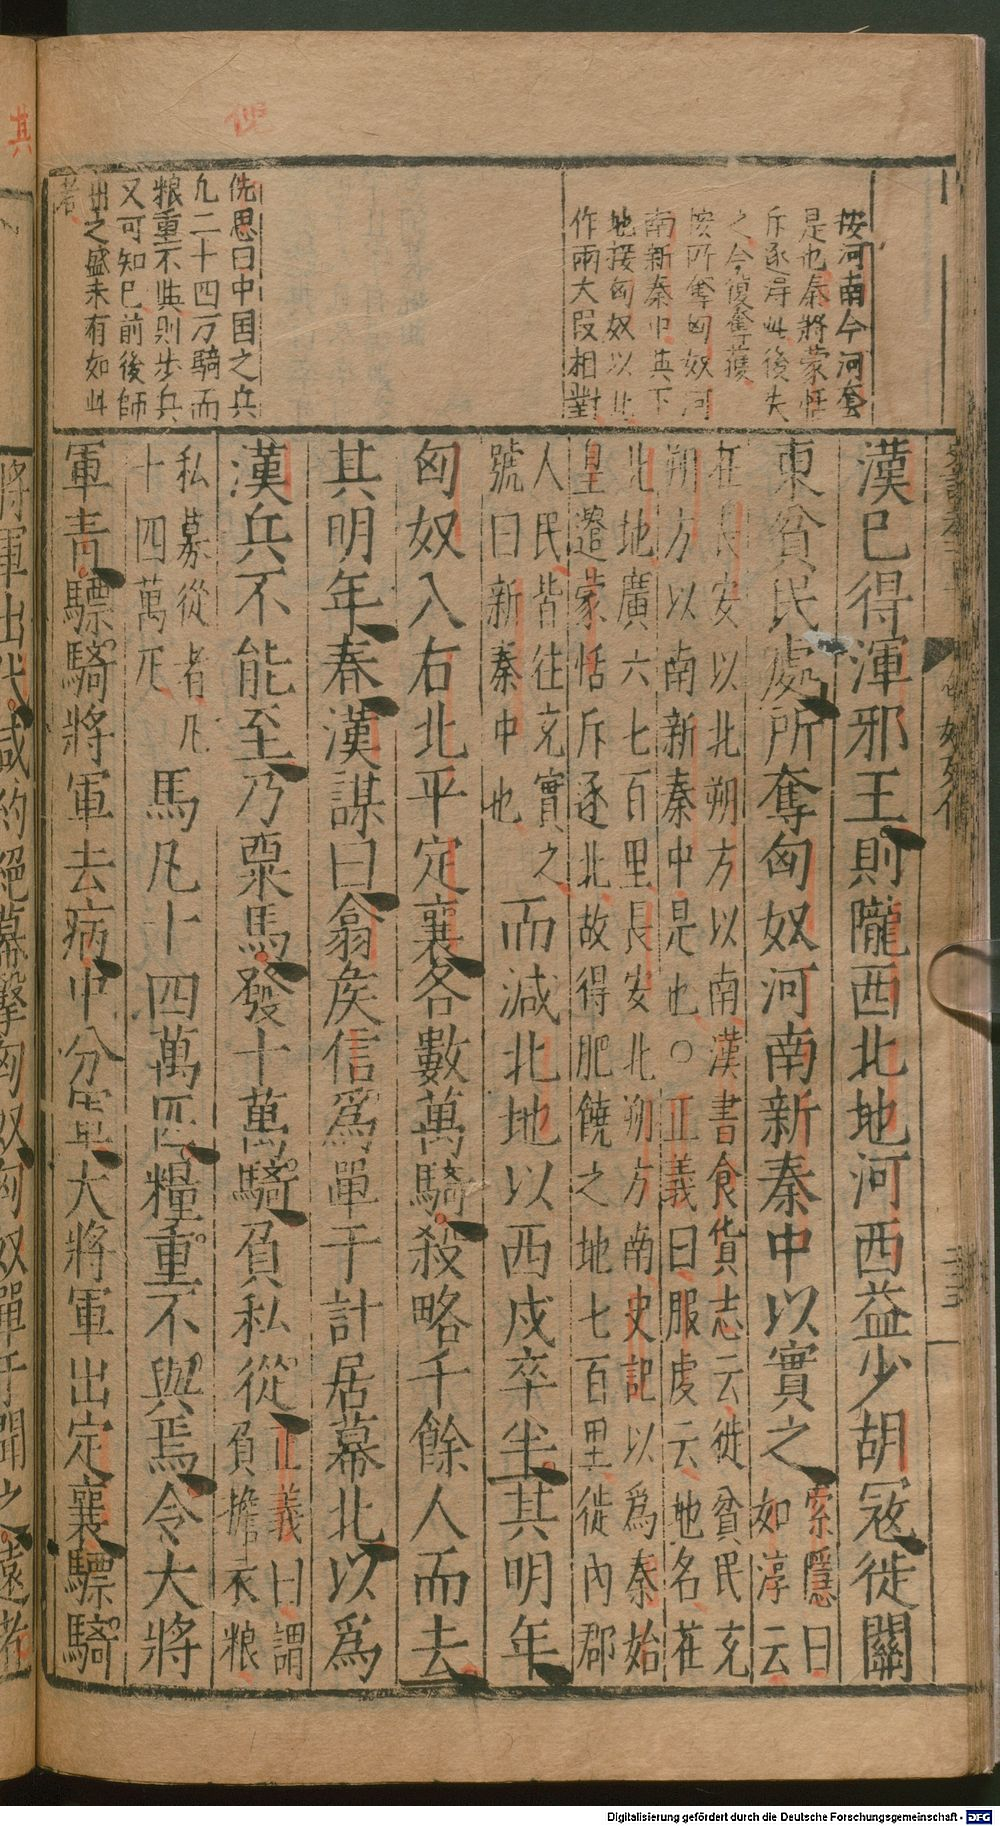 按河南今河套
是也秦將蒙恬
斥逐得此後失
之今復奮獲
按所奪匈奴河
南新秦中其下
地接匈奴以北
作兩大段相對
漢已得渾邪王則隴西北地河西益少胡寇徙關
東貧民處所奪匈奴河南新秦中以實之
索隱曰
如淳云
在長安以北朔方以南漢書食貨志云徙貧民充
朔方以南新秦中是也○正義曰服虔云地名在
北地廣六七百里長安北朔方南史記以爲秦始
皇遣蒙恬斥逐北故得肥饒之地七百里徙內郡
人民皆往充實之
號曰新秦中也
而減北地以西戍卒半其明年
匈奴入右北平定襄各數萬騎殺略千餘人而去
其明年春漢謀曰翕侯信爲單于計居幕北以爲
漢兵不能至乃粟馬發十萬騎負私從
正義曰謂
負擔衣粮
私募從者凡
十四萬疋
馬凡十四萬匹糧重不與焉令大將
軍青驃騎將軍去病中分軍大將軍出定襄驃騎
侁思曰中国之兵
凢二十四万騎而
粮重不與則步兵
又可知已前後師
出之盛未有如此
者
將軍出代咸約絕幕擊匈奴匈奴單于聞之遠
其
Digitalisierung gefördert durch die Deutsche Forschungsgemeinschaft - DFG